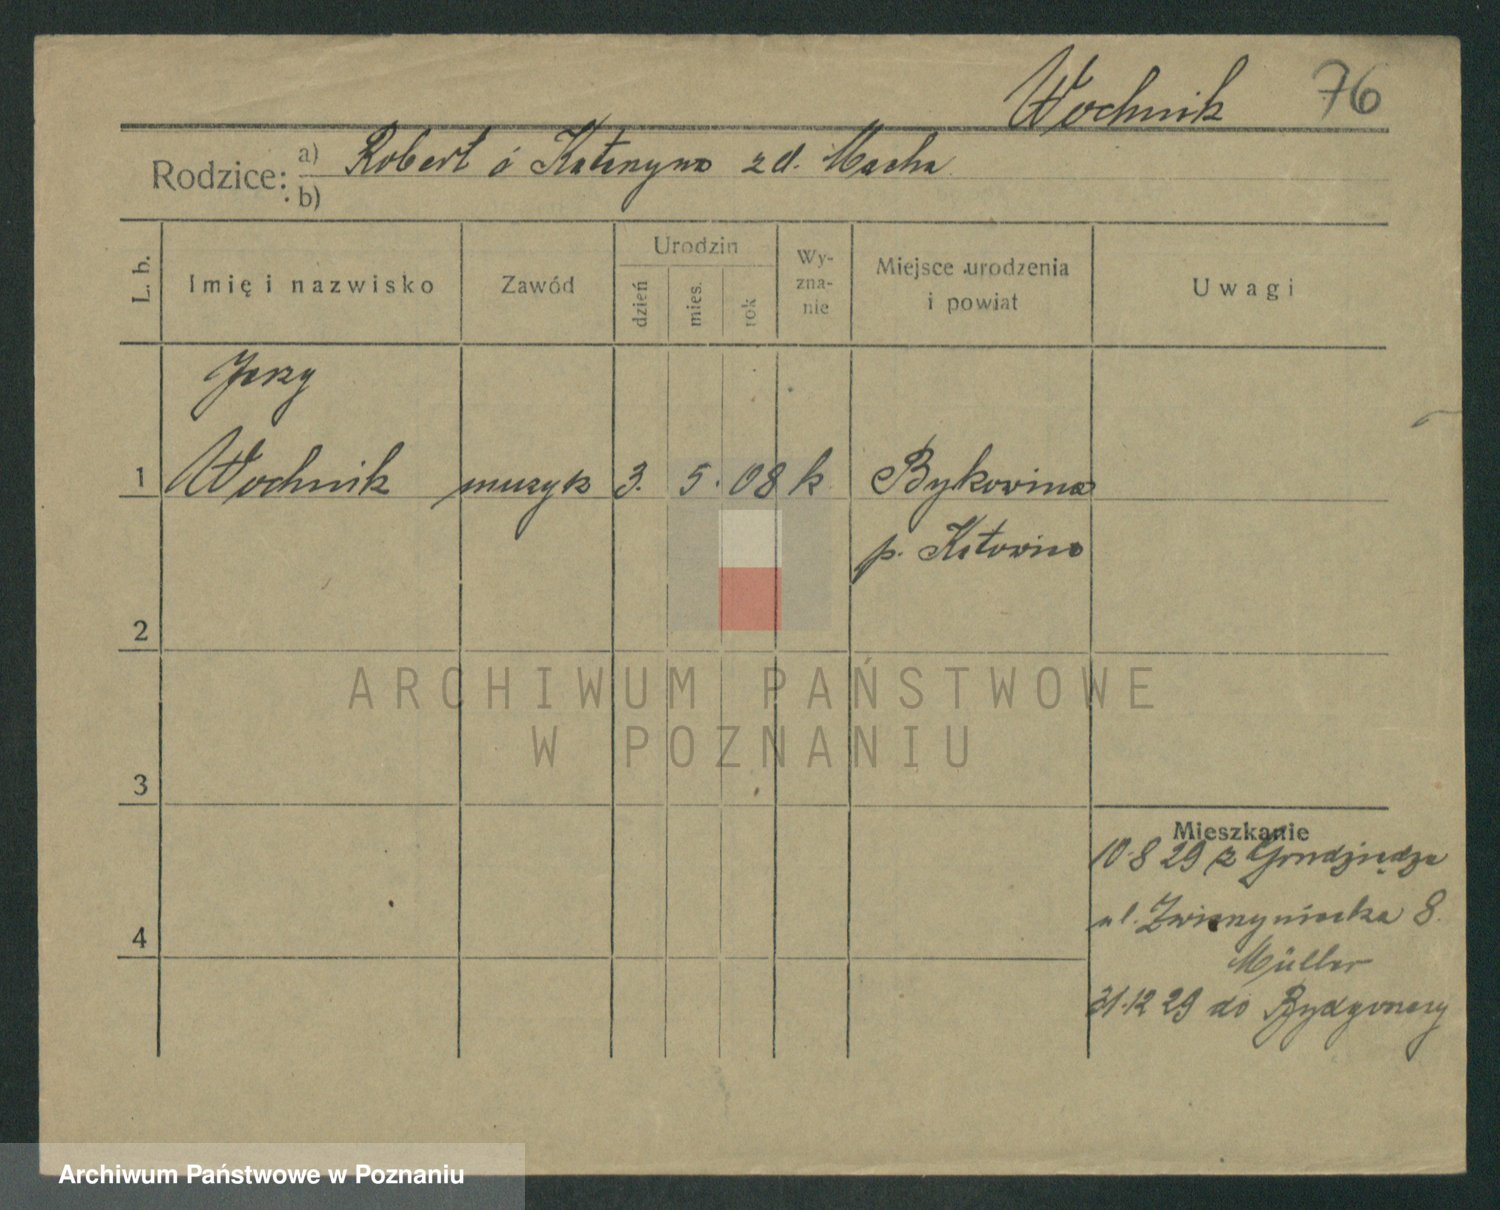 Wochnik 76
Rodzice: a) Robert ó Katarzyna zd. Macha
b)
L. b. Imię i nazwisko Zawód Urodzin dzień mies. rok Wy-zna-nie Miejsce urodzenia i powiat Uwagi
Jerzy
1 Wochnik muzyk 3. 5. 08 k Bykowina
p. Katowice
2
ARCHIWUM PAŃSTWOWE
W POZNANIU
3
Mieszkanie
10.8 29 z Grudziądza
4 ul. Zwierzyniecka 8.
Müller
31.12 29 do Bydgoszczy
Archiwum Państwowe w Poznaniu